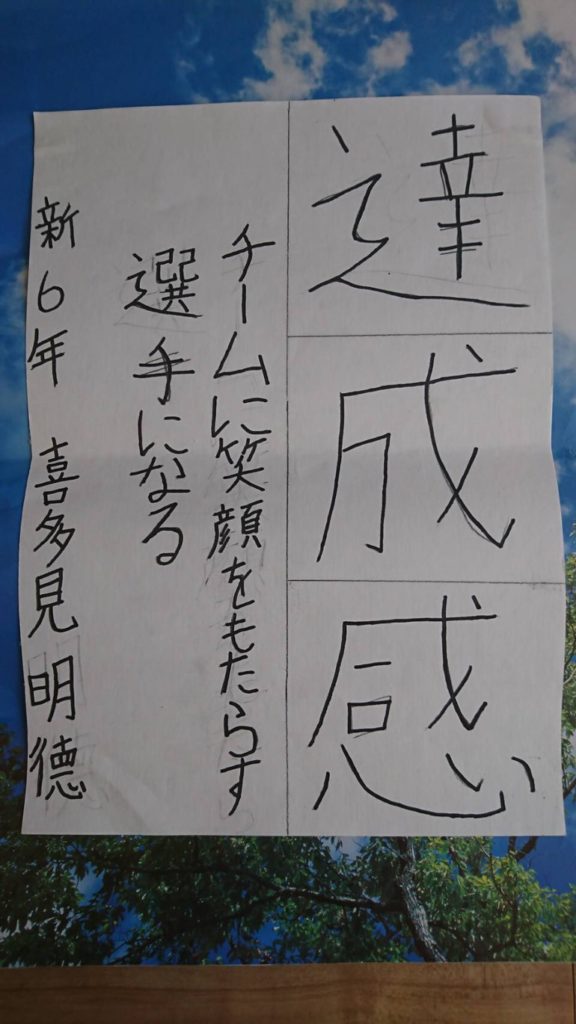 達成感
チームに笑顔をもたらす
選手になる
新6年 喜多見明徳